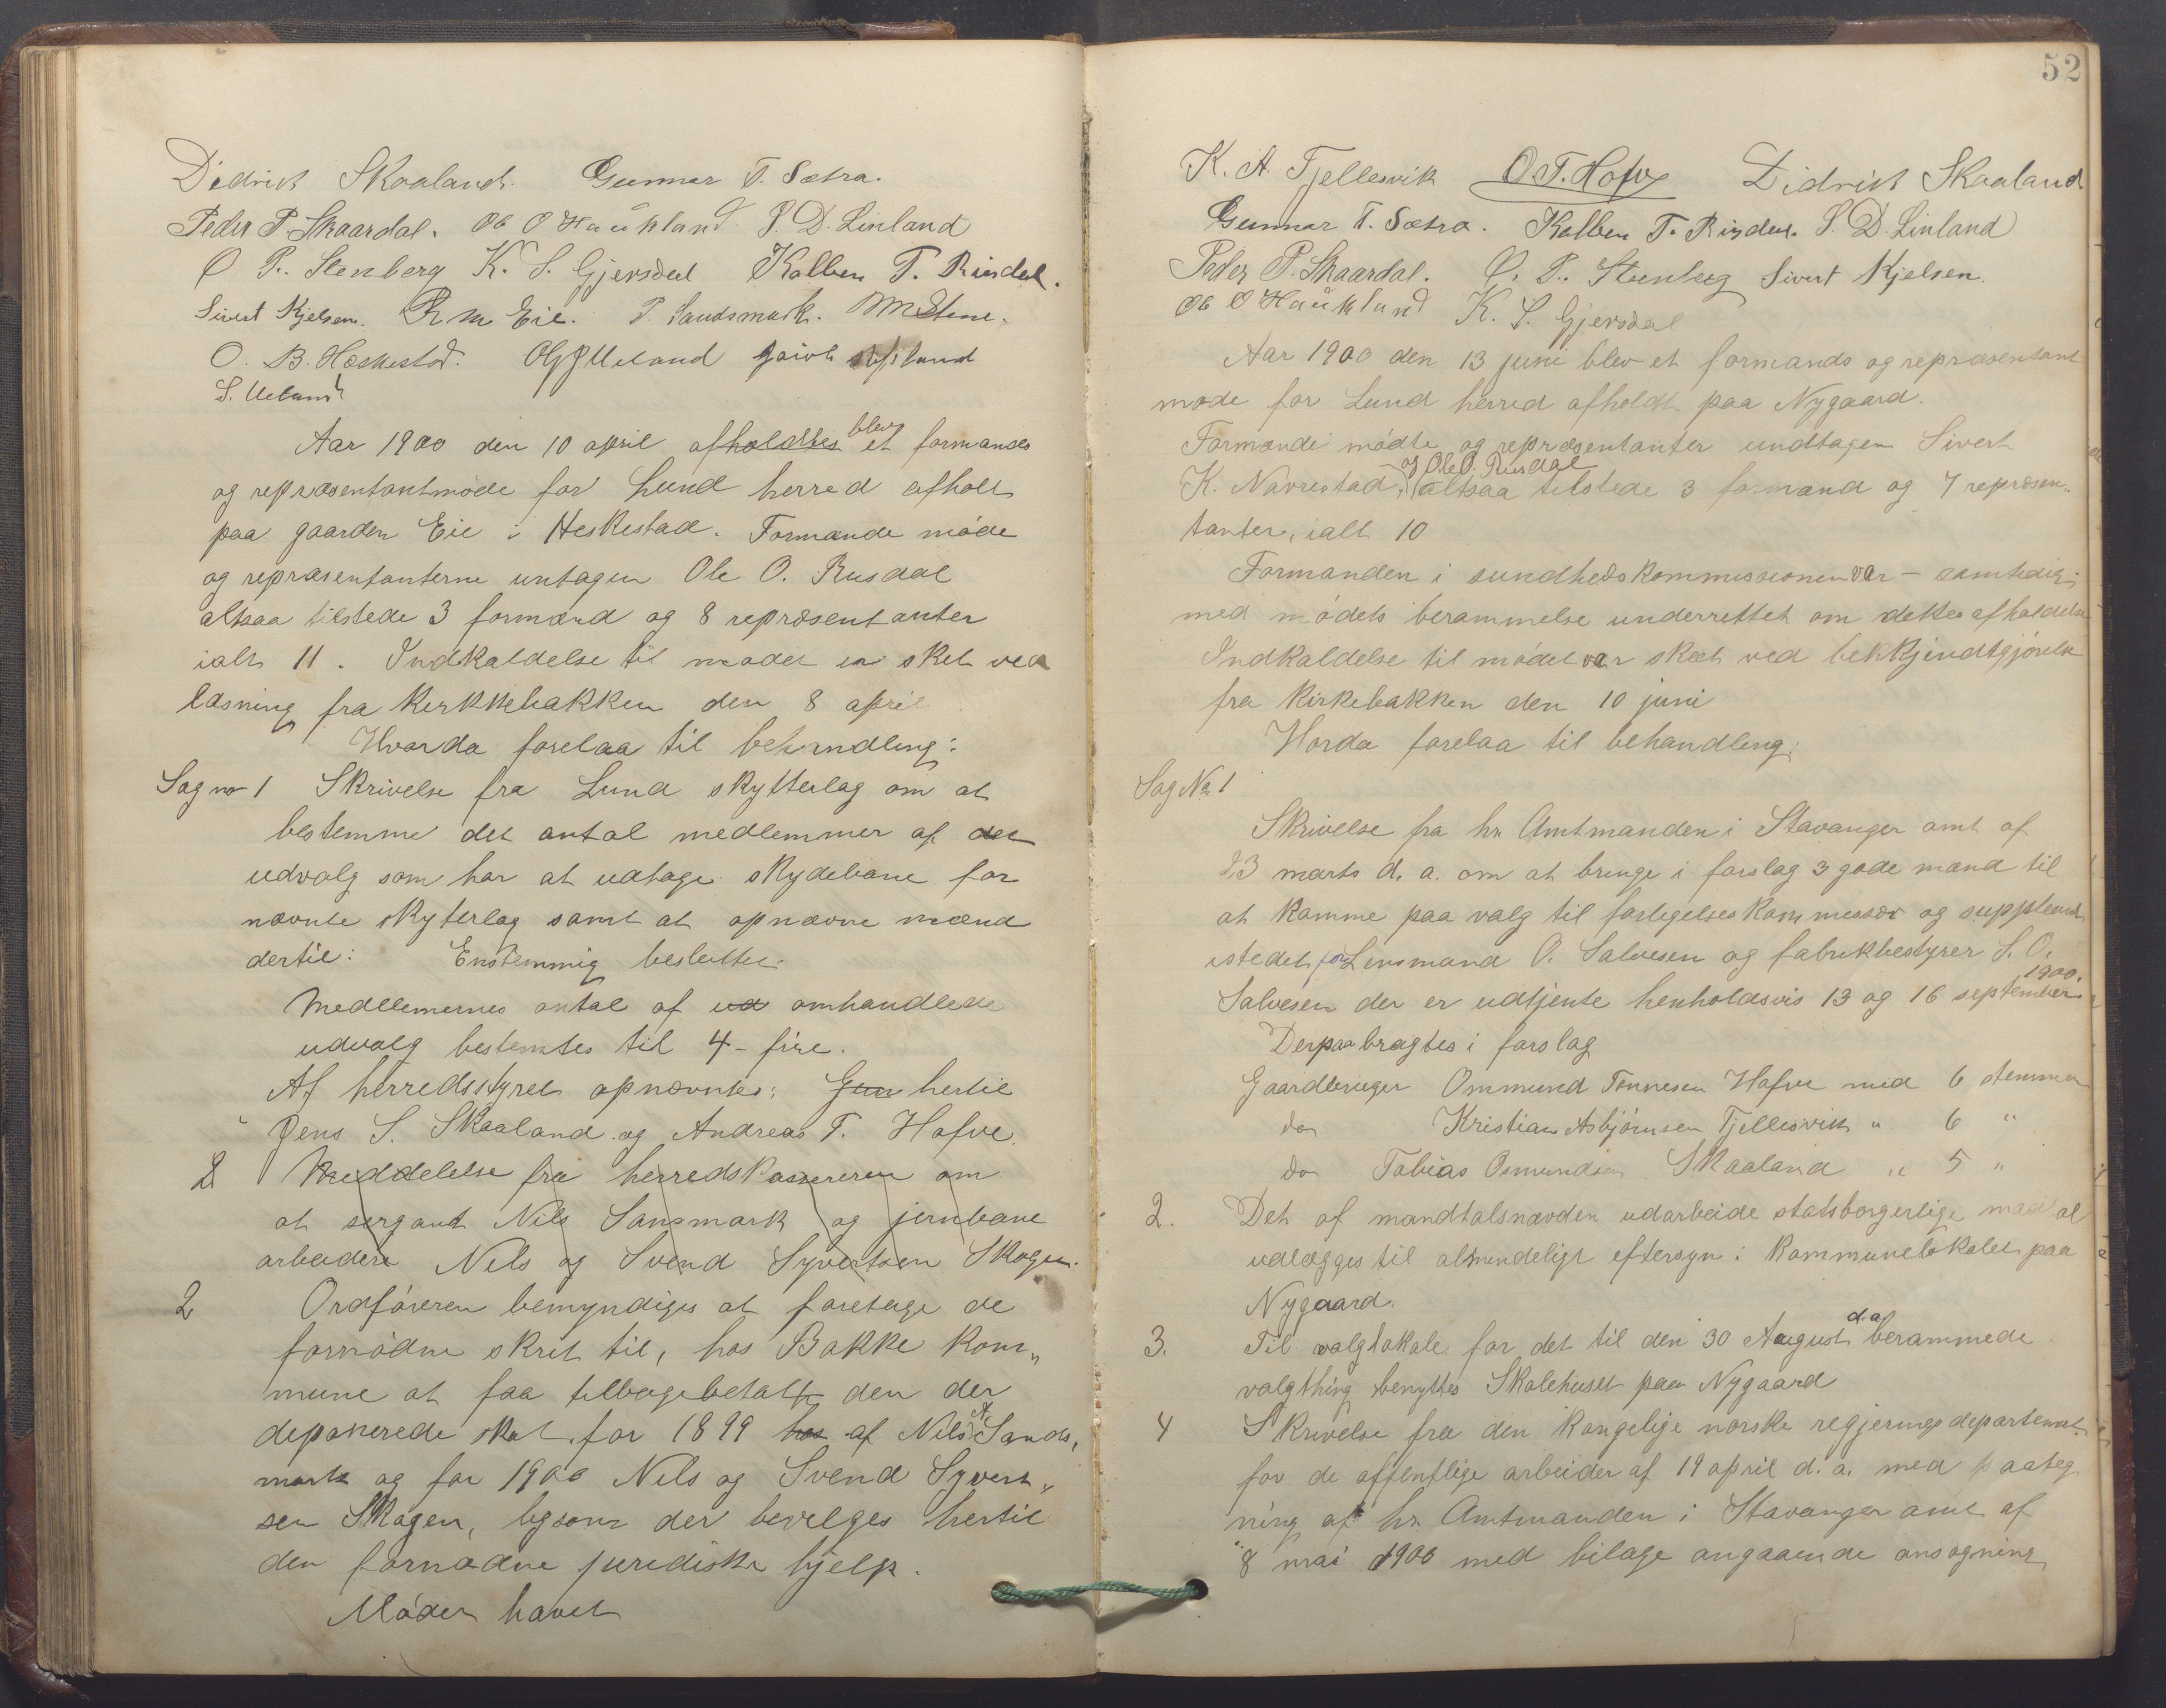 Didrik Skaaland. Gunnar T. Sætra.
Peder P. Skaardal. Ole O Haukland P. D. Linland
O P. Stenberg K. S. Gjersdal Kolben T. Rindal.
Sivert Kjelsen. R M Eie. P. Sandsmark. M Stene.
O. B. Heskestad. Ole J Ueland
S. Ueland
Aar 1900 den 10 april afholdtes blev et formands
og repræsentantmøde for Lund herred afholt
paa gaarden Eie i Heskestad. Formænde møde
og repræsentanterne untagen Ole O. Rusdal
altsaa tilstede 3 formænd og 8 repræsentanter
ialt 11. Indkaldelse til mødet er sket ved
læsning fra Kerkkebakken den 8 april
Hvorda forelaa til behandling:
Sag no 1 Skrivelse fra Lund skytterlag om at
bestemme det antal medlemmer af det
udvalg som har at udtage skydebane for
nævnte skyterlag samt at opnævne mænd
dertil: Enstemmig besluttet.
Medlemernes antal af ud omhandlede
udvalg bestemtes til 4 - fire.
Af herredsstyret opnævntes: Gun hertil
Jens S. Skaaland og Andreas T. Hafve.
2 Meddelelse fra herredskassereren om
at sergant Nils Sansmark og jernbane
arbeidere Nils og Svend Syvertsen Skogen.
2 Ordføreren bemyndiges at foretage de
fornødne skrit til, hos Bakke Kom„
mune at faa tilbagebetalt den der
deponerede skat for 1899 hos af Nils A. Sands„
mark og for 1900 Nils og Svend Syvert„
sen Skogen, ligsom der bevelges hertil
den fornødne juridiske hjelp.
Mødet hævet
52
K. A. Fjellesvik O. T. Hafve Didrik Skaaland
Gunnar T. Sætra. Kolben T. Rindal. P. D. Linland
Peder P. Skaardal. O. P. Stenberg Sivert Kjelsen.
Ole O Haukland K. S. Gjersdal
Aar 1900 den 13 juni blev et formands og repræsentant
møde for Lund herred afholdt paa Nygaard.
Formænde mødte og repræsentanter undtagen Sivert
K. Navrestad, og Ole O. Rusdal altsaa tilstede 3 formænd og 7 repræsen„
tanter, ialt 10
Formanden i sundhedskommissionen var – samtidig
med mødets berammelse underrettet om dettes afholdelse
Indkaldelse til mødet var skeet ved bekkjendtgjørelse
fra Kirkebakken den 10 juni
Horda forelaa til behandling:
Sag No 1
Skrivelse fra hr. Amtmanden i Stavanger amt af
23 marts d. a. om at bringe i forslag 3 gode mænd til
at komme paa valg til forligelseskommissær og suppleant
istedet for Lensmand O. Salvesen og fabrikbestyrer S. O.
Salvesen der er udtjente henholdsvis 13 og 16 september 1900.
Derpaa bragtes i forslag
Gaardbruger Ommund Tønnesen Hafve med 6 stemmer
do Kristian Asbjørnsen Fjellesvik „ 6 „
do Tobias Osmundsen Skaaland „ 5 „
2. Det af mandtalsnævden udarbeide statsborgerlige mandtal
udlægges til almindeligt eftersyn i Kommunelokalet paa
Nygaard.
3. Til valglokale for det til den 30 August d.a. berammede
valgthing benyttes Skolehuset paa Nygaard
4 Skrivelse fra den kongelige norske regjerings departement
for de offentlige arbeider af 19 april d. a. med paateg
ning af hr. Amtmanden i Stavanger amt af
8 mai 1900 med bilage angaaende ansøgning